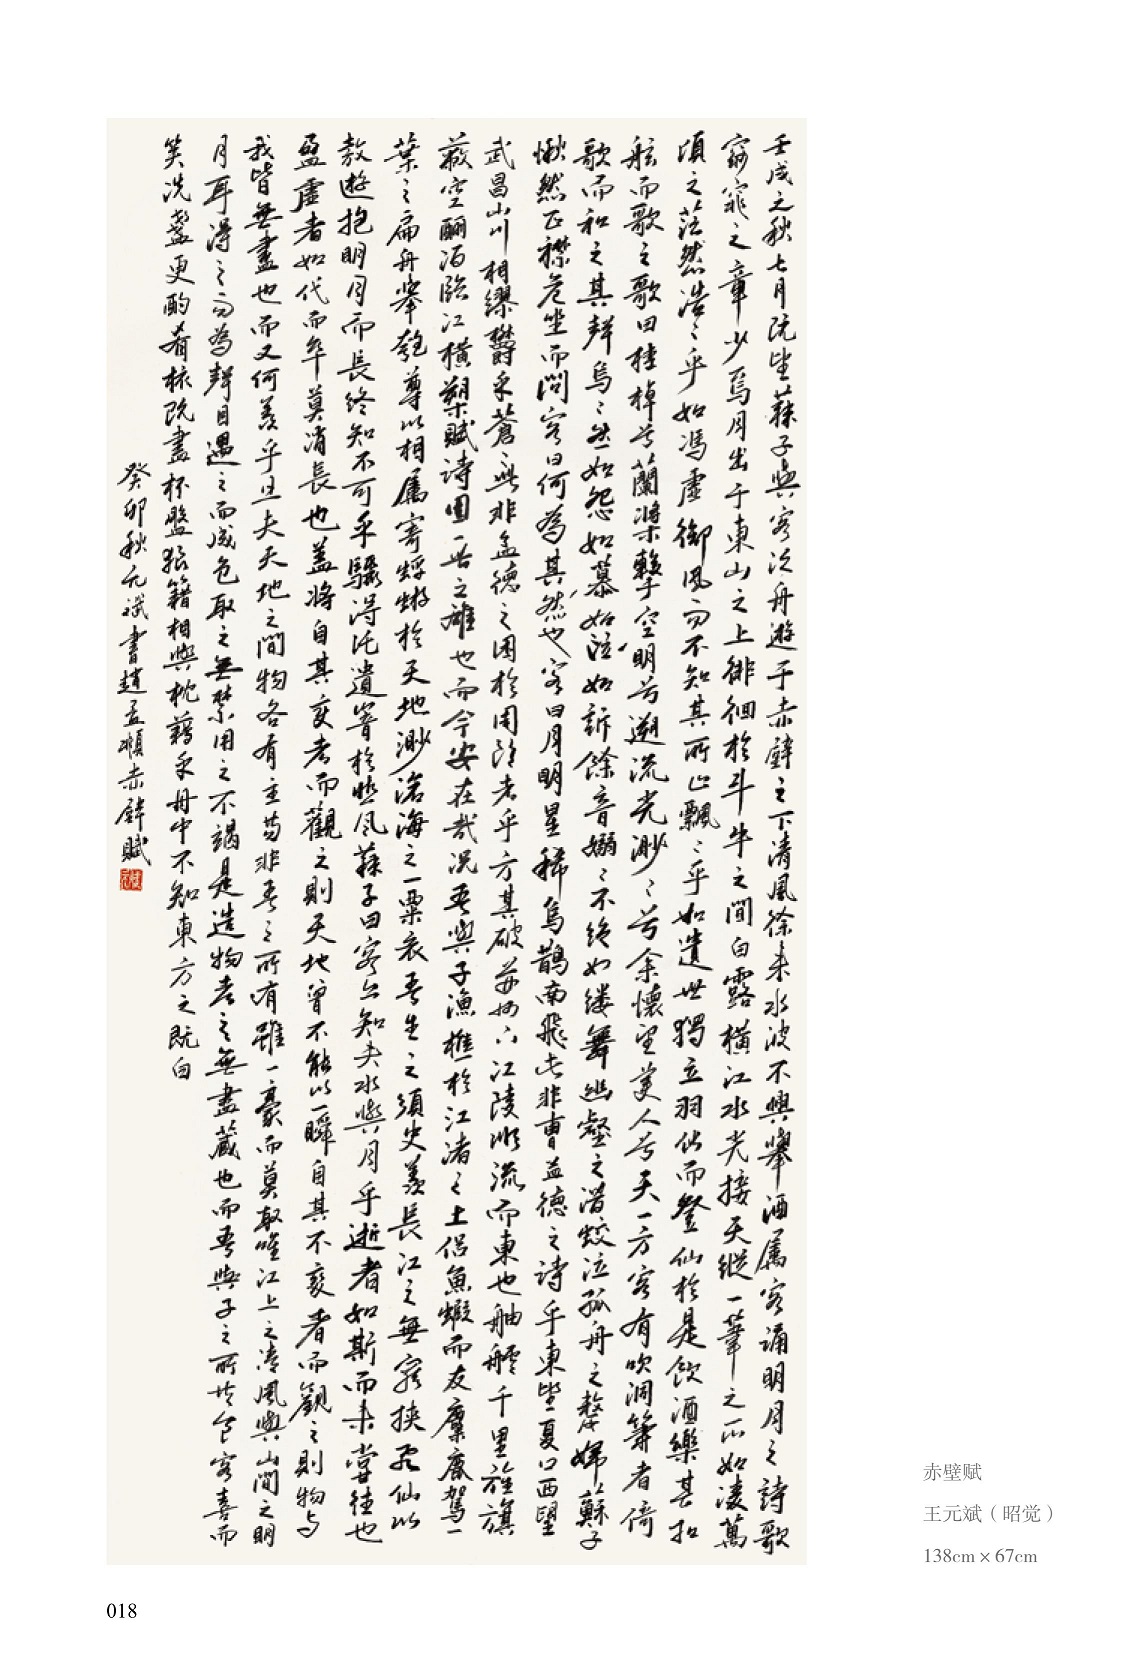 壬戌之秋七月既望蘇子與客泛舟遊于赤壁之下清風徐来水波不興舉酒属客誦明月之詩歌
窈窕之章少焉月出于東山之上徘徊於斗牛之間白露橫江水光接天縱一葦之所如凌萬
頃之茫然浩〻乎如馮虛御風而不知其所止飄〻乎如遺世獨立羽化而登仙於是飲酒樂甚扣
舷而歌之歌曰桂棹兮蘭槳擊空明兮遡流光渺〻兮余懷望美人兮天一方客有吹洞簫者倚
歌而和之其聲烏〻然如怨如慕如泣如訴餘音嫋〻不絕如縷舞幽壑之潛蛟泣孤舟之嫠婦蘇子
愀然正襟危坐而問客曰何為其然也客曰月明星稀烏鵲南飛此非曹孟德之詩乎東望夏口西望
武昌山川相繆鬱乎蒼〻此非孟德之困於周郎者乎方其破荊州下江陵順流而東也舳艫千里旌旗
蔽空釃酒臨江橫槊賦詩固一世之雄也而今安在哉況吾與子漁樵於江渚之上侶魚蝦而友麋鹿駕一
葉之扁舟舉匏尊以相属寄蜉蝣於天地渺滄海之一粟哀吾生之須臾羨長江之無窮挾飛仙以
遨遊抱明月而長終知不可乎驟得託遺響於悲風蘇子曰客亦知夫水與月乎逝者如斯而未嘗往也
盈虛者如代而卒莫消長也蓋將自其變者而觀之則天地曾不能以一瞬自其不變者而觀之則物与
我皆無盡也而又何羨乎且夫天地之間物各有主苟非吾之所有雖一豪而莫取唯江上之清風與山間之明
月耳得之而為聲目遇之而成色取之無禁用之不竭是造物者之無盡藏也而吾與子之所共食客喜而
笑洗盞更酌肴核既盡杯盤狼籍相與枕藉乎舟中不知東方之既白
癸卯秋元斌書趙孟頫赤壁賦
赤壁赋
王元斌（昭觉）
138cm×67cm
018